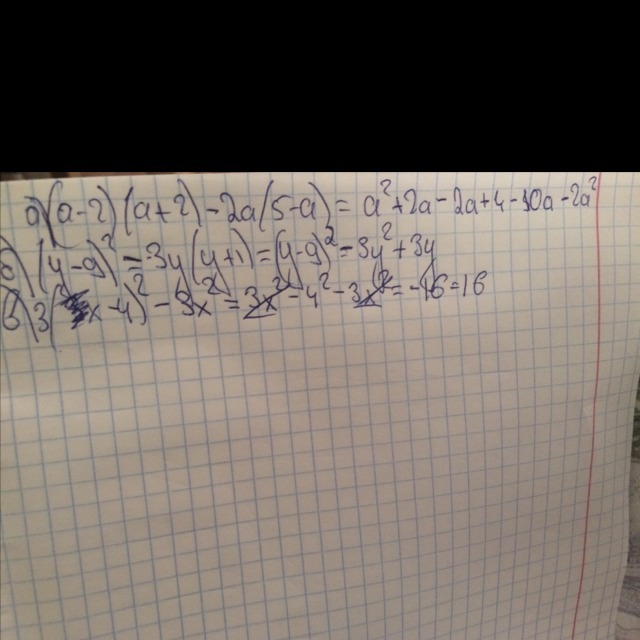 а) (a-2)(a+2)-2a(5-a)=a²+2a-2a+4-10a-2a²
б) (y-9)²-3y(y+1)=(y-9)²-3y²+3y
в) 3(x-4)²-3x²=3x²-4²-3x²=-16=16